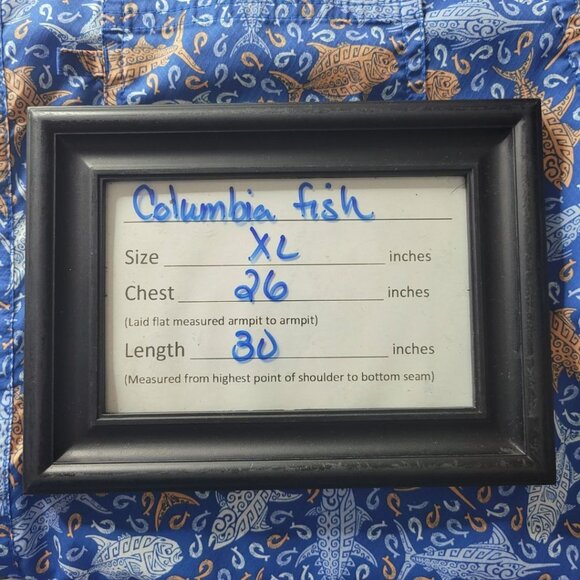 Columbia fish
Size XL inches
Chest 26 inches
(Laid flat measured armpit to armpit)
Length 30 inches
(Measured from highest point of shoulder to bottom seam)